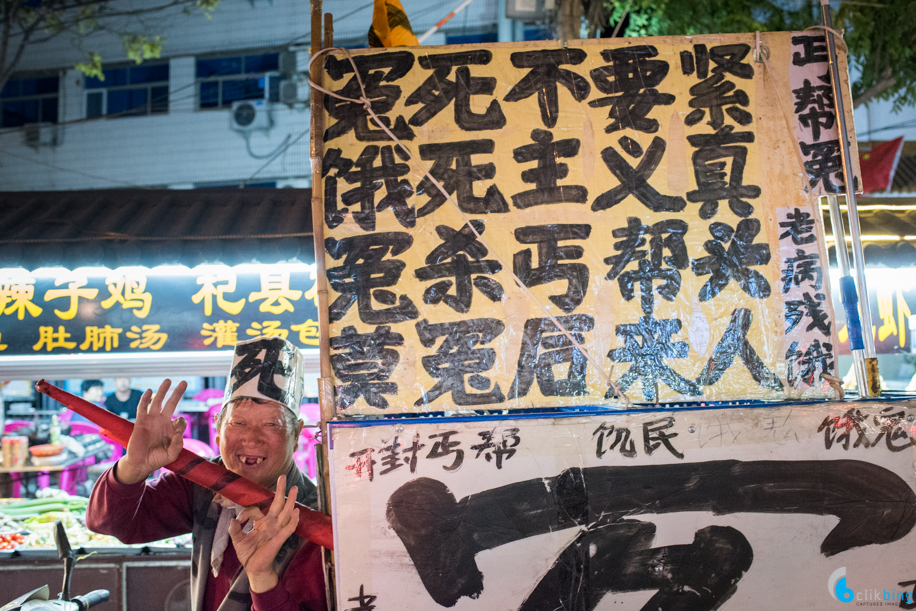 冤死不要紧
饿死主义真
冤杀丐帮头
莫冤后来人
帮冤
老病残饿
开封丐帮 饥民 饿鬼
死
辣子鸡 杞县
肚肺汤 灌汤包
虾
clikbing